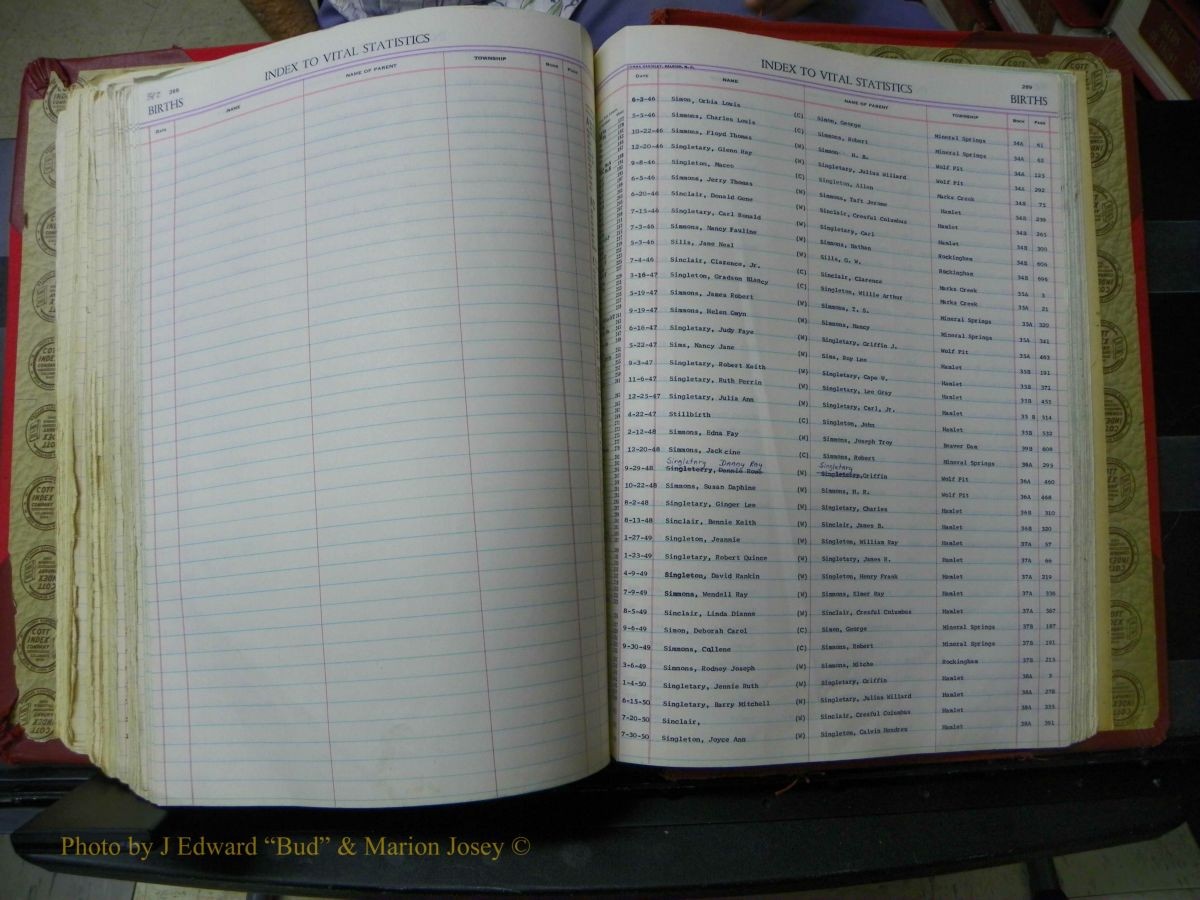 INDEX TO VITAL STATISTICS
288
BIRTHS
Date NAME NAME OF PARENT TOWNSHIP Book Page
INDEX TO VITAL STATISTICS
289
BIRTHS
Date NAME NAME OF PARENT TOWNSHIP Book Page
6-3-46 Simon, Orbia Louis (C) Simon, George Mineral Springs 34A 61
5-5-46 Simmons, Charles Louis (C) Simmons, Robert Mineral Springs 34A 62
10-22-46 Simmons, Floyd Thomas (W) Simmon H. R. Wolf Pit 34A 125
12-20-46 Singletary, Glenn Ray (W) Singletary, Julius Willard Wolf Pit 34A 292
9-8-46 Singleton, Maceo (C) Singleton, Allen Marks Creek 34B 75
6-5-46 Simmons, Jerry Thomas (W) Simmons, Taft Jerome Hamlet 34B 239
6-20-46 Sinclair, Donald Gene (W) Sinclair, Cresful Columbus Hamlet 34B 265
7-15-46 Singletary, Carl Ronald (W) Singletary, Carl Hamlet 34B 300
7-3-46 Simmons, Nancy Pauline (W) Simmons, Nathan Rockingham 34B 606
5-3-46 Sills, Jane Neal (W) Sills, G. W. Rockingham 34B 694
7-4-46 Sinclair, Clarence, Jr. (C) Sinclair, Clarence Marks Creek 35A 3
3-16-47 Singleton, Gradson Blancy (C) Singleton, Willie Arthur Marks Creek 35A 21
5-19-47 Simmons, James Robert (W) Simmons, T. S. Mineral Springs 35A 320
9-19-47 Simmons, Helen Gwyn (W) Simmons, Nancy Mineral Springs 35A 341
6-16-47 Singletary, Judy Faye (W) Singletary, Griffin J. Wolf Pit 35A 463
5-22-47 Sims, Nancy Jane (W) Sims, Roy Lee Hamlet 35B 191
9-3-47 Singletary, Robert Keith (W) Singletary, Cape W. Hamlet 35B 371
11-6-47 Singletary, Ruth Perrin (W) Singletary, Lee Gray Hamlet 35B 455
12-25-47 Singletary, Julia Ann (W) Singletary, Carl, Jr. Hamlet 35 B 514
4-22-47 Stillbirth (C) Singleton, John Hamlet 35B 532
2-12-48 Simmons, Edna Fay (W) Simmons, Joseph Troy Beaver Dam 39B 608
12-20-48 Simmons, Jackcine (C) Simmons, Robert Mineral Springs 36A 295
Singletary Danny Ray Singletary
9-29-48 Singleterry, Dennie Rowe (W) Singleterry, Griffin Wolf Pit 36A 460
10-22-48 Simmons, Susan Daphine (W) Simmons, H. R. Wolf Pit 36A 468
8-2-48 Singletary, Ginger Lee (W) Singletary, Charles Hamlet 36B 310
8-13-48 Sinclair, Bennie Keith (W) Sinclair, James B. Hamlet 36B 320
1-27-49 Singleton, Jeannie (W) Singleton, William Ray Hamlet 37A 57
1-23-49 Singletary, Robert Quince (W) Singletary, James H. Hamlet 37A 66
4-9-49 Singleton, David Rankin (W) Singleton, Henry Frank Hamlet 37A 219
7-9-49 Simmons, Wendell Ray (W) Simmons, Elmer Ray Hamlet 37A 336
8-5-49 Sinclair, Linda Dianne (W) Sinclair, Cresful Columbus Hamlet 37A 367
9-6-49 Simon, Deborah Carol (C) Simon, George Mineral Springs 37B 187
9-30-49 Simmons, Cullene (C) Simmons, Robert Mineral Springs 37B 191
3-6-49 Simmons, Rodney Joseph (W) Simmons, Mitcho Rockingham 37B 215
1-4-50 Singletary, Jennie Ruth (W) Singletary, Griffin Hamlet 38A 3
6-15-50 Singletary, Barry Mitchell (W) Singletary, Julius Willard Hamlet 38A 278
7-20-50 Sinclair, (W) Sinclair, Cresful Columbus Hamlet 38A 335
7-30-50 Singleton, Joyce Ann (W) Singleton, Calvin Hendrex Hamlet 38A 391
Photo by J Edward “Bud” & Marion Josey ©